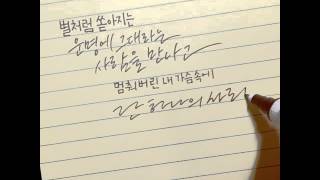 별처럼 쏟아지는
운명에 그대라는
사람을 만나고
멈춰버린 내 가슴속에
단 하나의 사랑